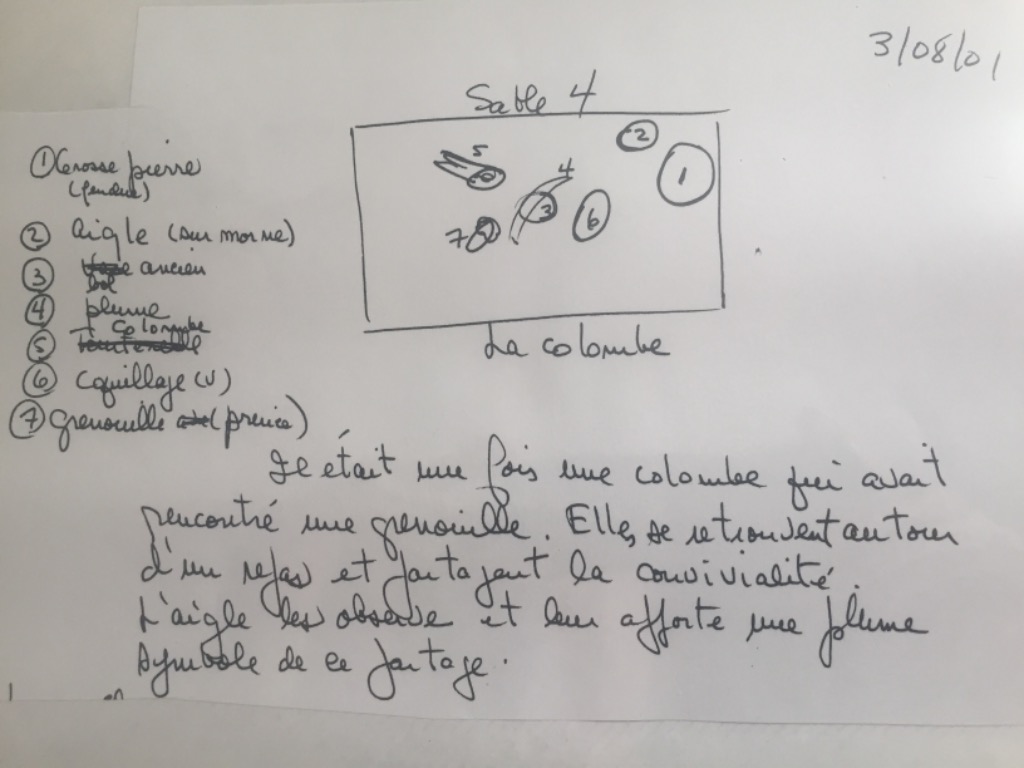 3/08/01
Sable 4
① Grosse pierre
(fendue)
② aigle (sur morne)
③ ancien
bol
④ plume
⑤ colombe
⑥ coquillage (V)
⑦ grenouille (prenice)
5
2
4
1
3
6
7
La colombe
Il était une fois une colombe qui avait
rencontré une grenouille. Elles se retrouvent autour
d'un repas et partagent la convivialité.
L'aigle les observe et leur apporte une plume
symbole de ce partage.